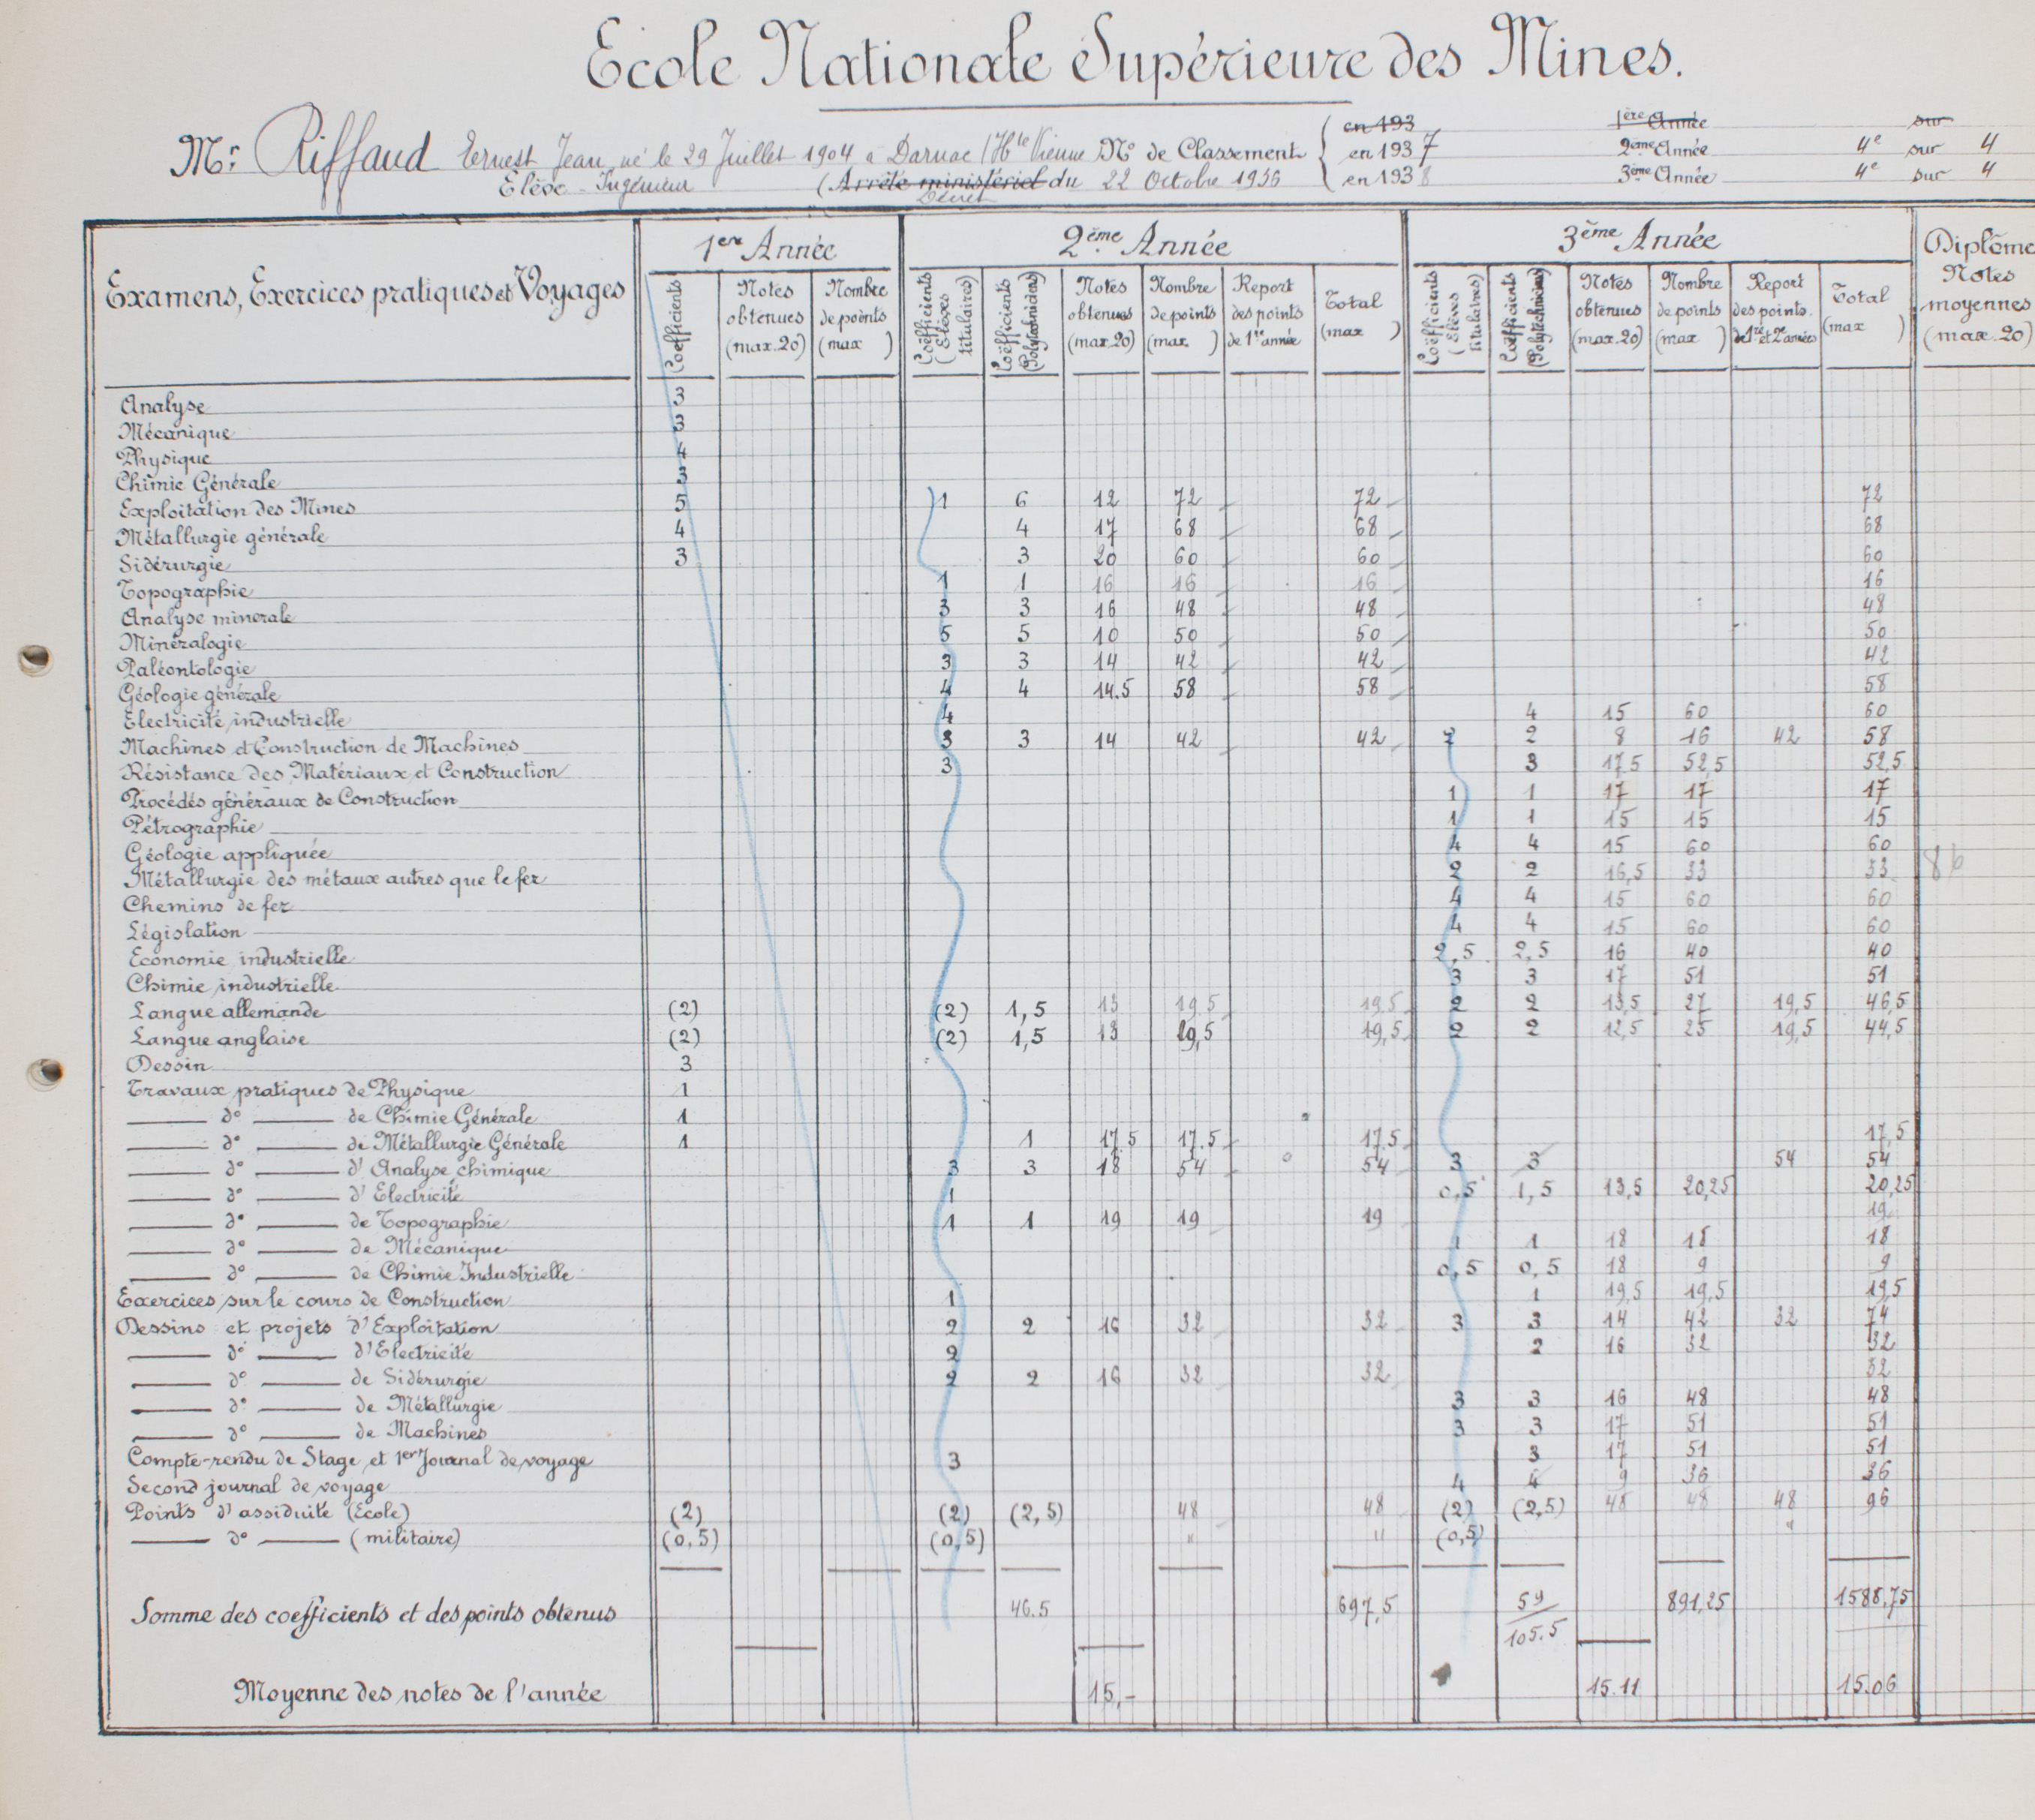 Ecole Nationale Supérieure des Mines.
Mr. Riffaud Ernest Jean, né le 29 Juillet 1904 à Darnac (Hte Vienne) No de Classement en 193 1ère Année sur
en 1937 2ème Année 4e sur 4
Elève-Ingénieur (Arrêté ministériel du 22 Octobre 1936 en 1938 3ème Année 4e sur 4
Décret
Examens, Exercices pratiques et Voyages 1ère Année 2ème Année 3ème Année Diplôme Notes moyennes (max. 20)
Coëfficients Notes obtenues (max. 20) Nombre de points (max ) Coëfficients (Elèves titulaires) Coëfficients (Polytechniciens) Notes obtenues (max. 20) Nombre de points (max. ) Report des points de 1re année Total (max ) Coëfficients (Elèves titulaires) Coëfficients (Polytechniciens) Notes obtenues (max. 20) Nombre de points (max ) Report des points de 1re et 2e années Total (max )
Analyse 3
Mécanique 3
Physique 4
Chimie Générale 3
Exploitation des Mines 5 1 6 12 72 72 72
Métallurgie générale 4 4 17 68 68 68
Sidérurgie 3 3 20 60 60 60
Topographie 1 1 16 16 16 16
Analyse minérale 3 3 16 48 48 48
Minéralogie 5 5 10 50 50 50
Paléontologie 3 3 14 42 42 42
Géologie générale 4 4 14.5 58 58 58
Electricité industrielle 4 4 15 60 60
Machines et Construction de Machines 3 3 14 42 42 2 2 8 16 42 58
Résistance des Matériaux et Construction 3 3 17,5 52,5 52,5
Procédés généraux de Construction 1 1 17 17 17
Pétrographie 1 1 15 15 15
Géologie appliquée 4 4 15 60 60
Métallurgie des métaux autres que le fer 2 2 16,5 33 33
Chemins de fer 4 4 15 60 60
Législation 4 4 15 60 60
Economie industrielle 2,5 2,5 16 40 40
Chimie industrielle 3 3 17 51 51
Langue allemande (2) (2) 1,5 13 19,5 19,5 2 2 13,5 27 19,5 46,5
Langue anglaise (2) (2) 1,5 13 19,5 19,5 2 2 12,5 25 19,5 44,5
Dessin 3
Travaux pratiques de Physique 1
do de Chimie Générale 1
do de Métallurgie Générale 1 1 17,5 17.5 17,5 17,5
do d'Analyse chimique 3 3 18 54 54 3 3 54 54
do d'Electricité 1 0,5 1,5 13,5 20,25 20,25
do de Topographie 1 1 19 19 19 19
do de Mécanique 1 1 18 18 18
do de Chimie Industrielle 0,5 0,5 18 9 9
Exercices sur le cours de Construction 1 1 19,5 19,5 19,5
Dessins et projets d'Exploitation 2 2 16 32 32 3 3 14 42 32 74
do d'Electricité 2 2 16 32 32
do de Sidérurgie 2 2 16 32 32 32
do de Métallurgie 3 3 16 48 48
do de Machines 3 3 17 51 51
Compte-rendu de Stage et 1er Journal de voyage 3 3 17 51 51
Second journal de voyage 4 4 9 36 36
Points d'assiduité (Ecole) (2) (2) (2,5) 48 48 (2) (2,5) 48 48 48 96
do (militaire) (0,5) (0,5) " " (0,5) "
Somme des coefficients et des points obtenus 46.5 697,5 59 891,25 1588,75
105.5
Moyenne des notes de l'année 15,- 15.11 15.06